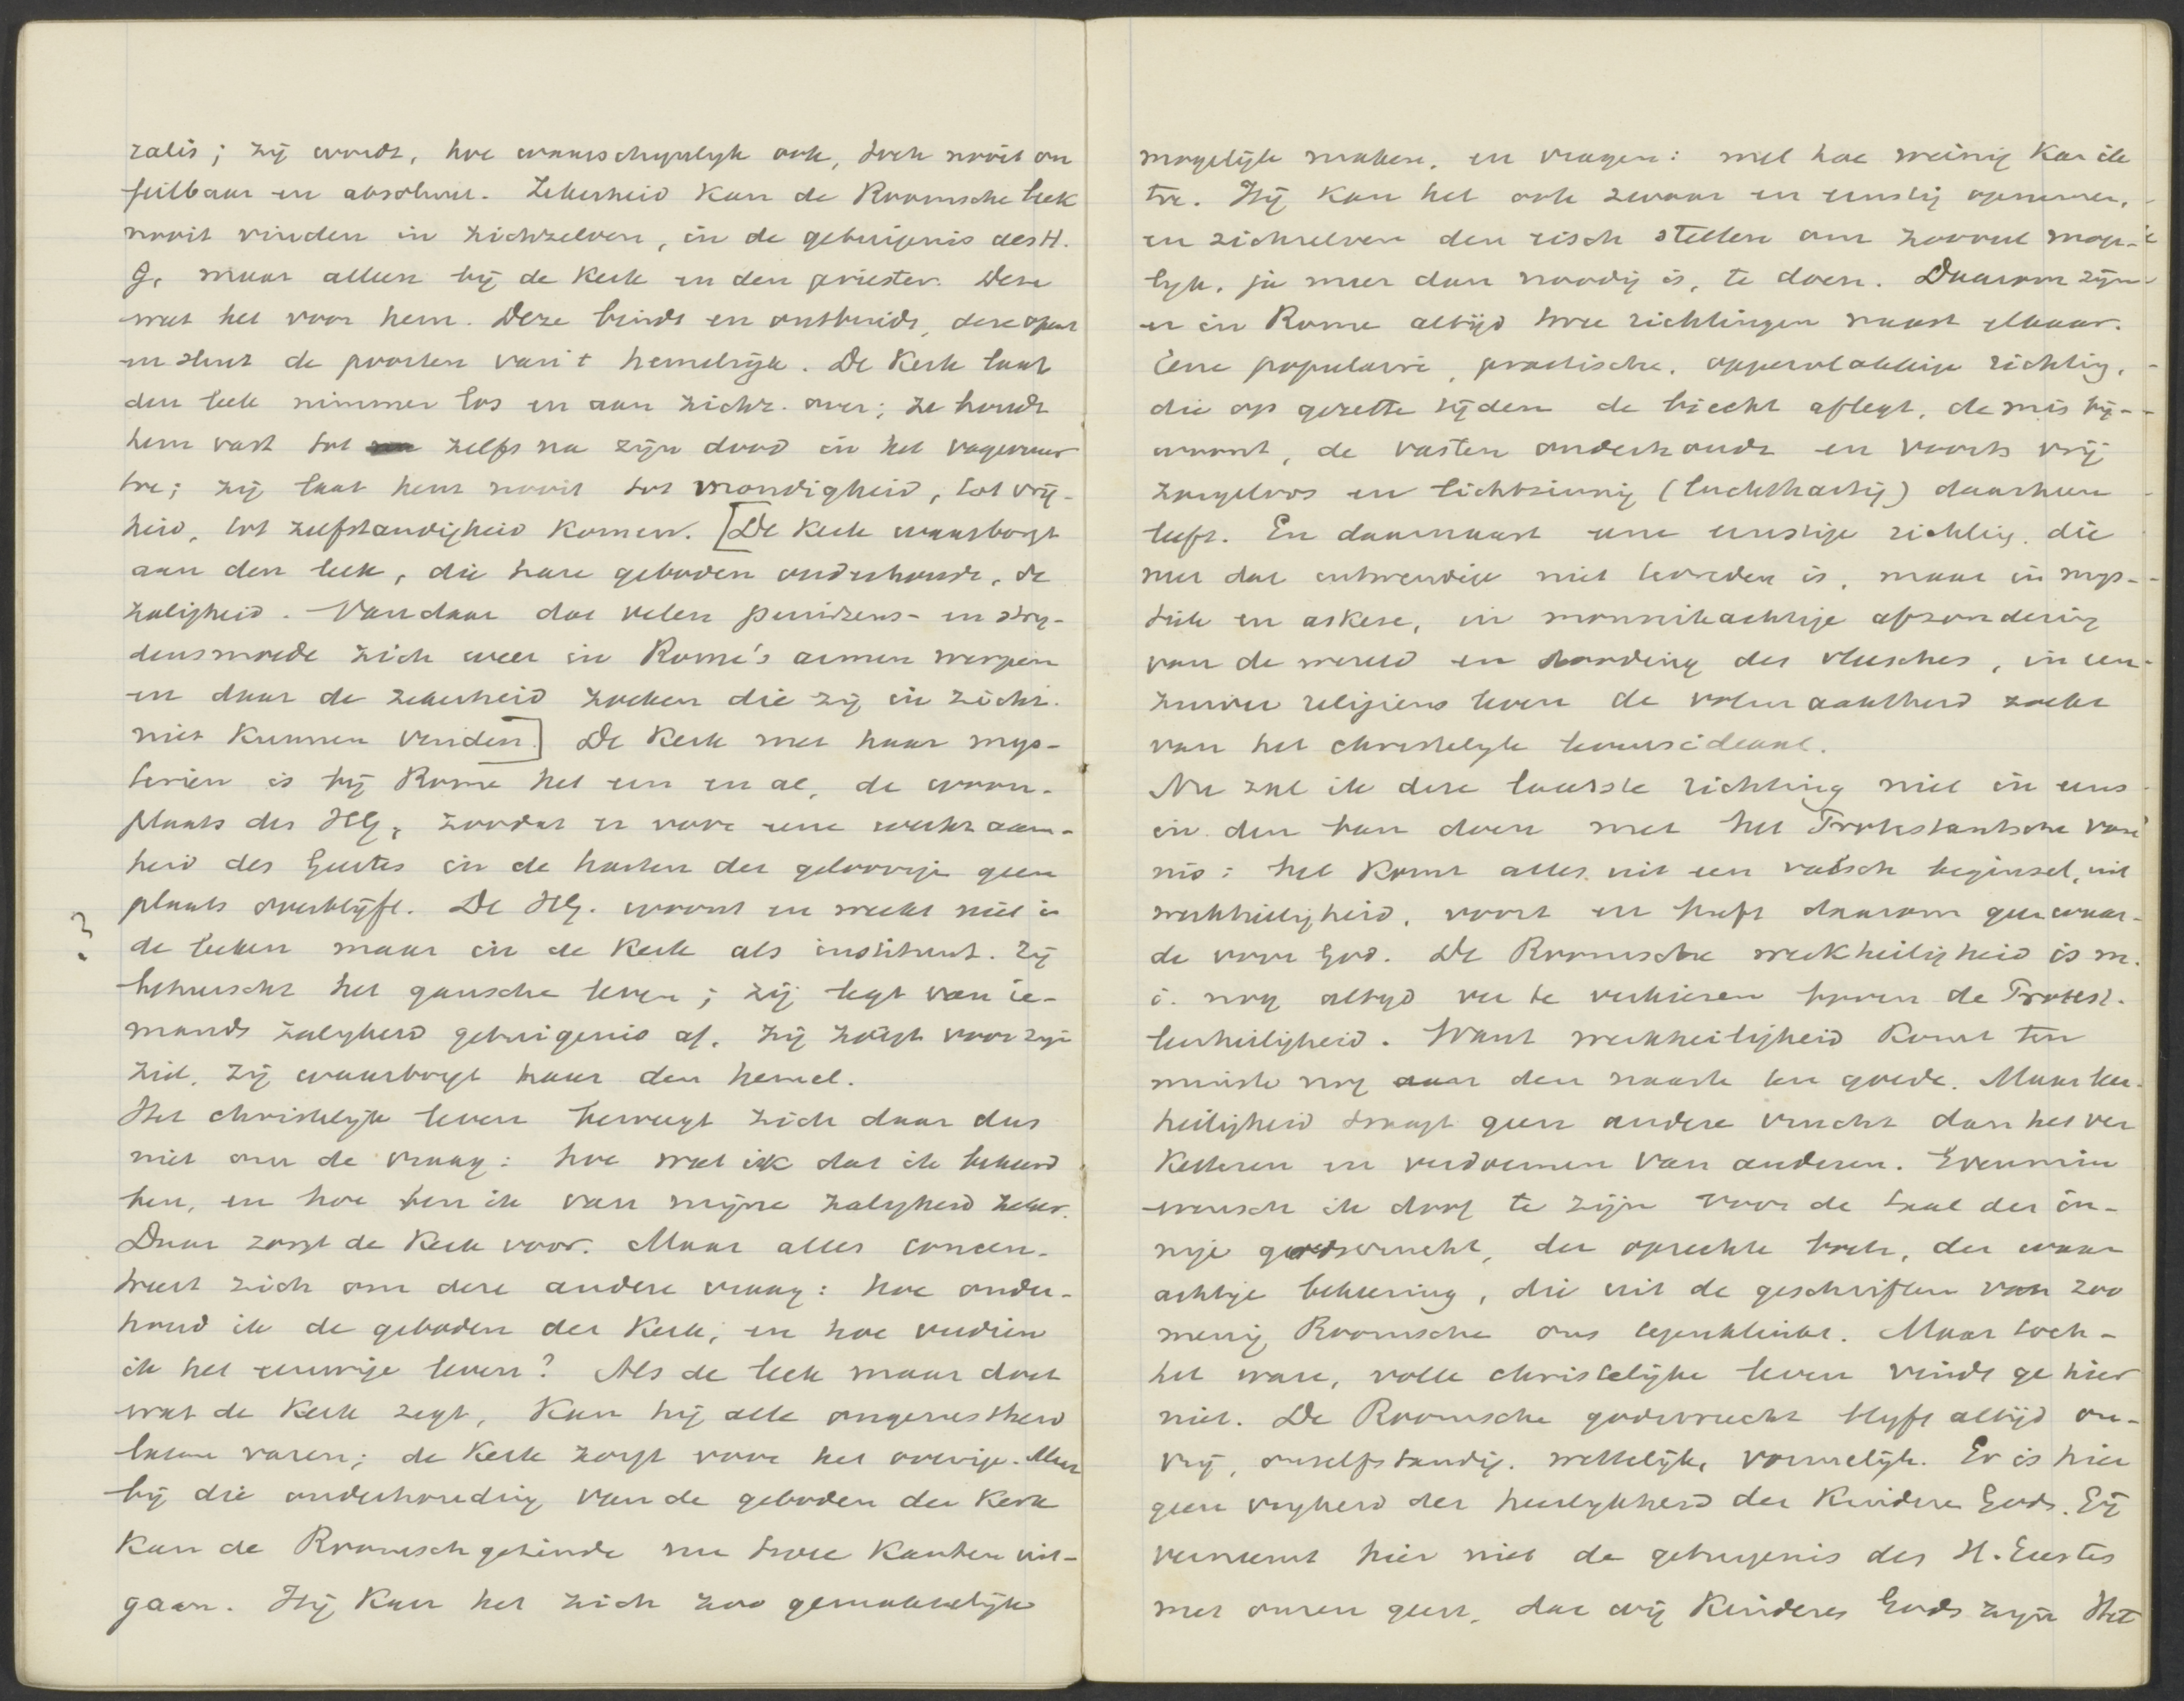 zalis; zij wordt, hoe waarschynlyk ook, toch nooit on
feilbaar en absoluut. Zekerheid kan de Roomsche leek
nooit vinden in zichzelven, in de getuigenis des H.
G. maar alleen bij de Kerk en den priester. Deze
weet het voor hem. Deze bindt en ontbindt, deze opent
en sluit de poorten van 't hemelrijk. De Kerk laat
den leek nimmer los en aan zichz. over; ze houdt
hem vast tot zelfs na zijn dood in het vagevuur
toe; zij laat hem nooit tot mondigheid, tot vrij-
heid, tot zelfstandigheid komen. [De Kerk waarborgt
aan den leek, die hare geboden onderhoudt, de
zaligheid. Vandaar dat velen peinzens- en stry-
densmoede zich weer in Rome's armen werpen
en daar de zekerheid zoeken die zij in zichz.
niet kunnen vinden.] De Kerk met haar mys-
teriën is bij Rome het een en al, de woon-
plaats des HG, zoodat er voor eene werkzaam-
heid des Geestes in de harten der geloovige geen
plaats overblijft. De HG. woont en werkt niet in
de leeken maar in de Kerk als instituut. Zij
beheerscht het gansche leven; zij legt van ie-
mands zalygheid getuigenis af. Zij zorgt voor zijn
ziel, zij waarborgt haar den hemel.
Het christelyk leven beweegt zich daar dus
niet om de vraag: hoe weet ik dat ik bekeerd
ben, en hoe ben ik van mijne zalygheid zeker.
Daar zorgt de Kerk voor. Maar alles concen-
treert zich om deze andere vraag: hoe onder-
houd ik de geboden der Kerk, en hoe verdien
ik het eeuwige leven? Als de leek maar doet
wat de Kerk zegt, kan hij alle ongerustheid
laten varen; de Kerk zorgt voor het overige. Maar
bij die onderhouding van de geboden der Kerk
kan de Roomschgezinde nu twee kanten uit-
gaan. Hij kan het zich zoo gemakkelijk
mogelijk maken, en vragen: met hoe weinig kan ik
toe. Hij kan het ook zwaar en ernstig opnemen,
en zichzelven den eisch stellen om zooveel moge-
lyk, ja meer dan noodig is, te doen. Daarom zijn
er in Rome altijd twee richtingen naast elkaar.
Eene populaire, practische, oppervlakkige richting,
die op gezette tijden de biecht aflegt, de mis bij-
woont, de vasten onderhoudt en voorts vrij
zorgeloos en lichtzinnig (luchthartig) daarheen
leeft. En daarnaast eene ernstige richting, die
met dat uitwendige niet tevreden is, maar in mys-
tiek en askese, in monnikachtige afzondering
van de wereld en dooding des vleesches, in een
zuiver religieus leven de volmaaktheid zoekt
van het christelyk levensideaal.
Nu zal ik deze laatste richting niet in eens
in den ban doen met het Protestantsche von
nis: het komt alles uit een valsch beginsel, uit
werkheiligheid, voort en heeft daarom geen waar-
de voor God. De Roomsche werkheiligheid is m.
i. nog altyd ver te verkiezen boven de Protest.
leerheiligheid. Want werkheiligheid komt ten
minste nog aan den naaste ten goede. Maar leer-
heiligheid draagt geen andere vrucht dan het ver
ketteren en verdoemen van anderen. Evenmin
wensch ik doof te zijn voor de taal der in-
nige godsvrucht, der oprechte boete, der waar
achtige bekeering, die uit de geschriften van zoo
menig Roomsche ons tegenklinkt. Maar toch-
het ware, volle christelijke leven vindt ge hier
niet. De Roomsche godsvrucht blyft altijd on-
vrij, onzelfstandig, wettelijk, vormelijk. Er is hier
geen vryheid der heerlykheid der kinderen Gods. Gij
verneemt hier niet de getuigenis des H. Geestes
met onzen geest, dat wij kinderen Gods zijn Het